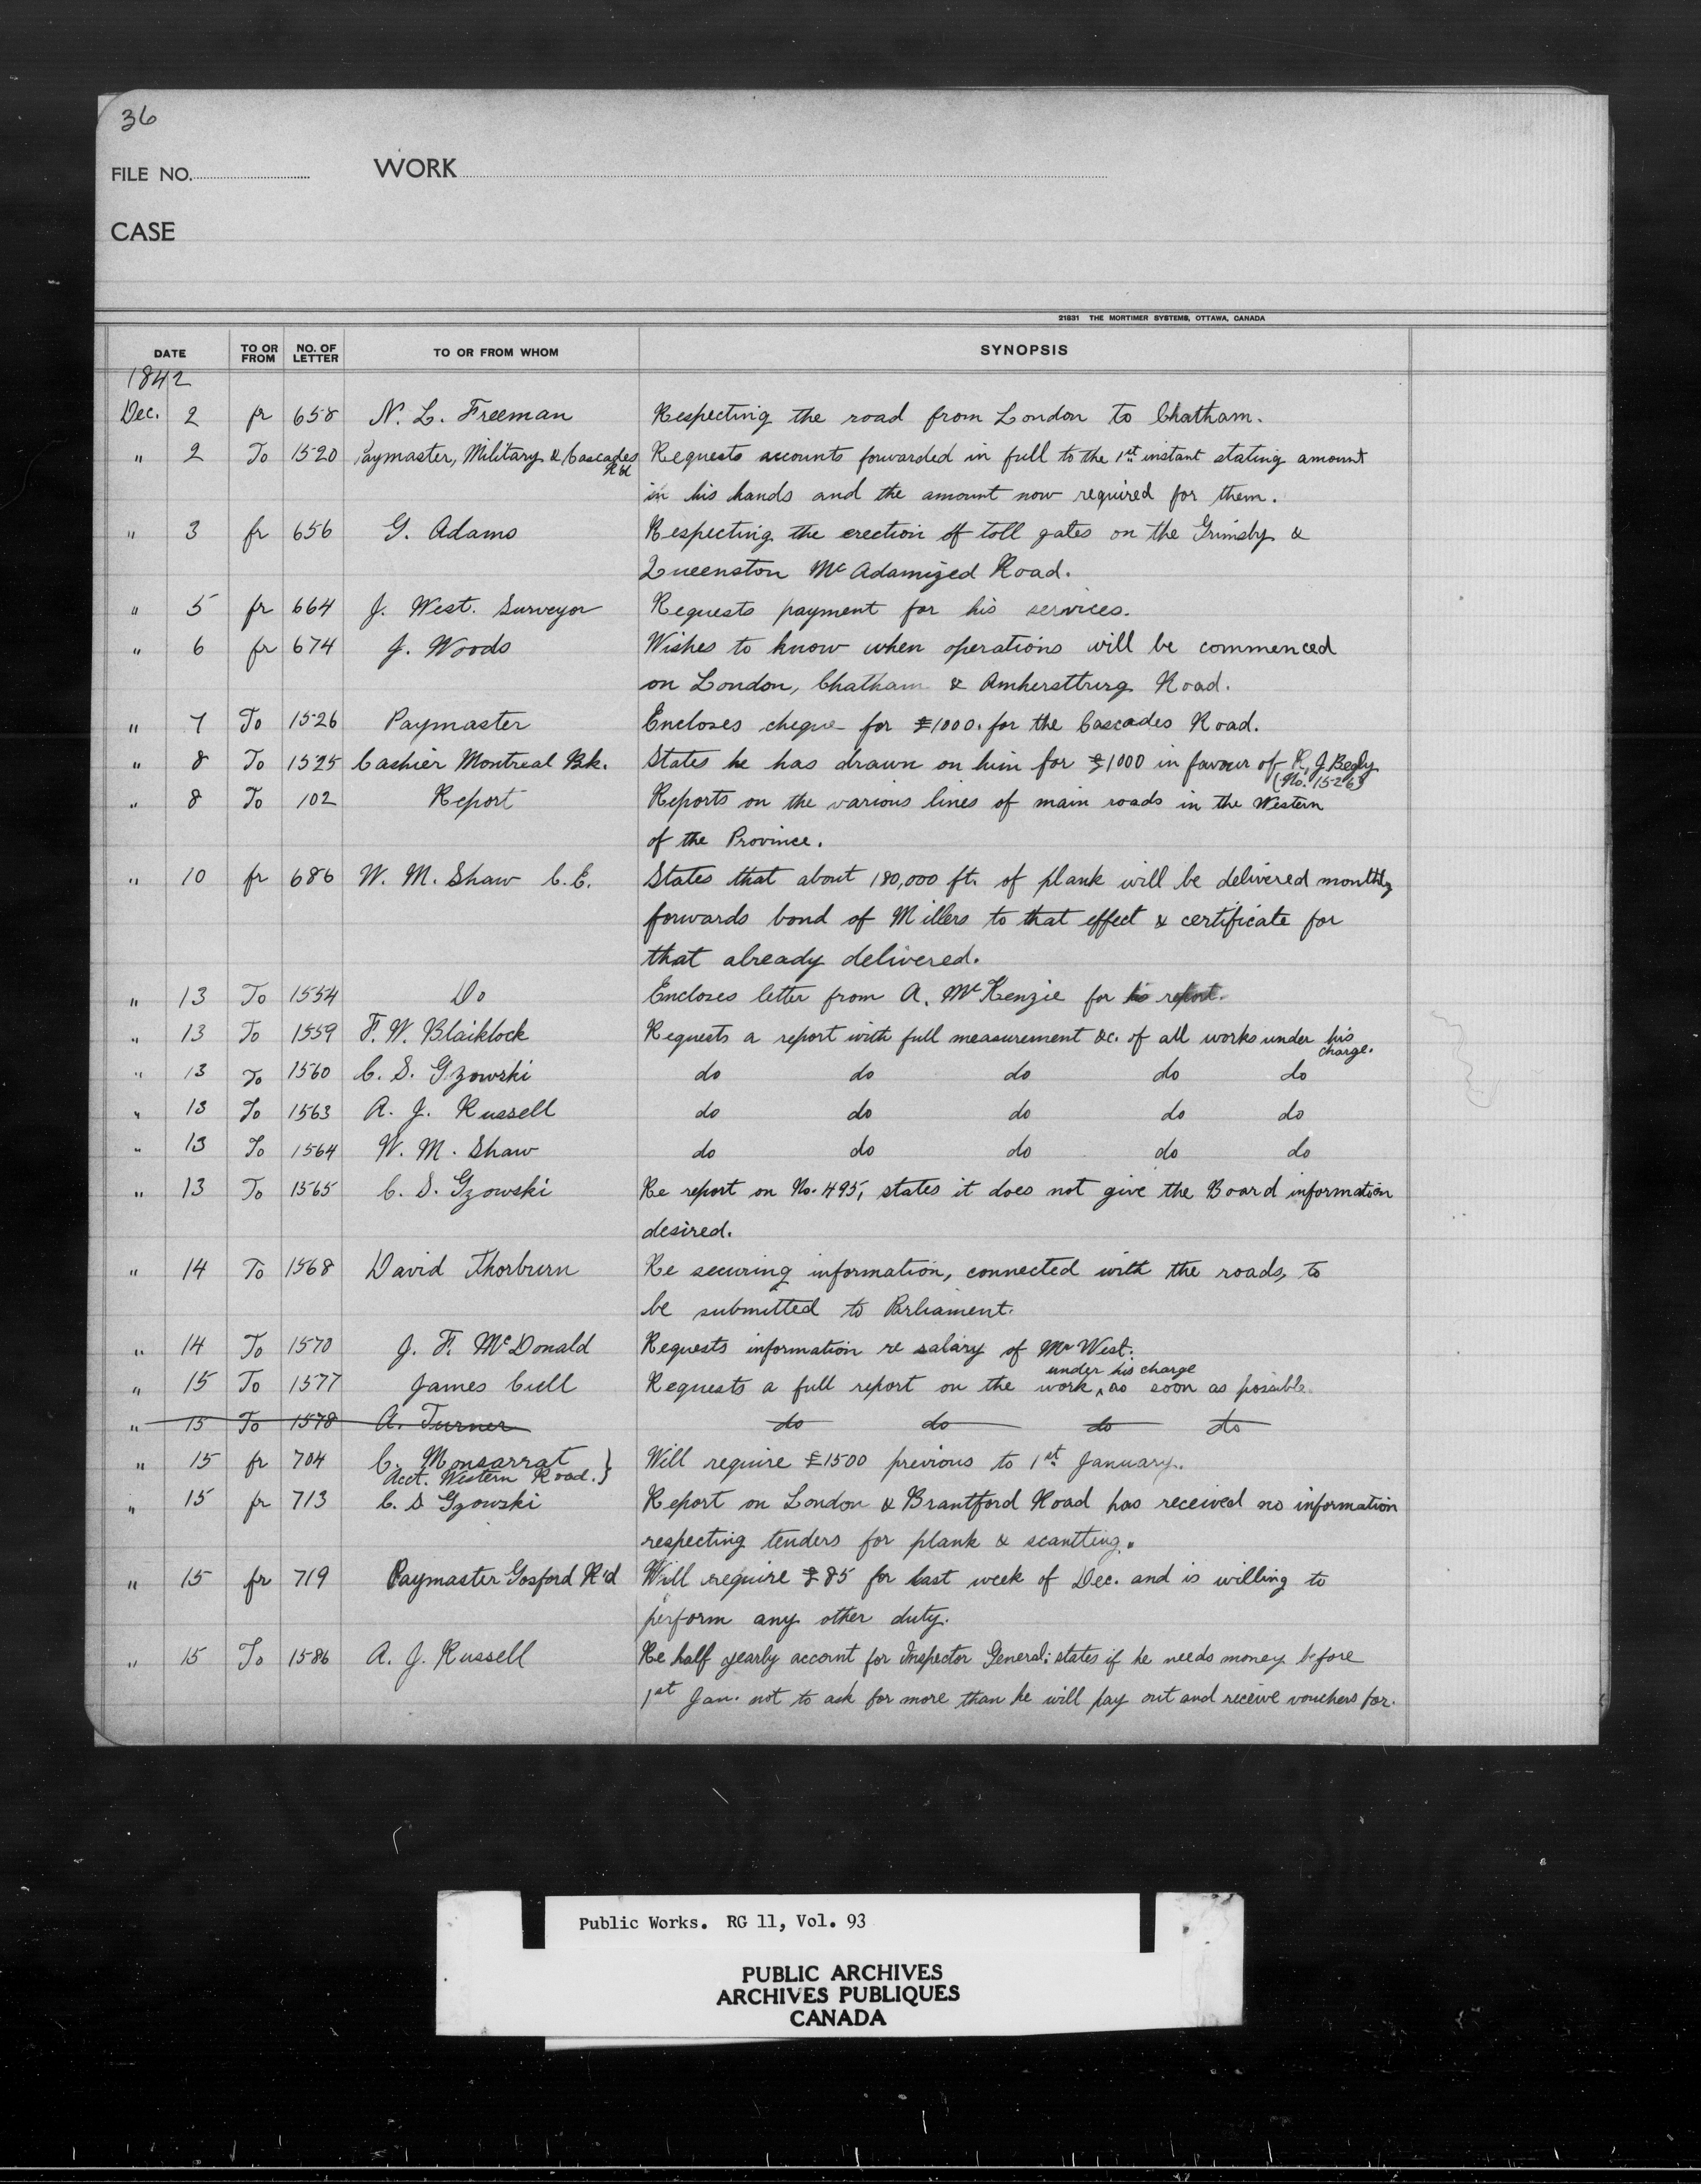 36
FILE NO. WORK
CASE
21831 THE MORTIMER SYSTEMS, OTTAWA, CANADA
DATE TO OR FROM NO. OF LETTER TO OR FROM WHOM SYNOPSIS
1842
Dec. 2 fr 658 N. L. Freeman Respecting the road from London to Chatham.
" 2 To 1520 Paymaster, Military & Cascades Rd Requests accounts forwarded in full to the 1st instant stating amount
in his hands and the amount now required for them.
" 3 fr 656 G. Adams Respecting the erection of toll gates on the Grimsby &
Queenston McAdamized Road.
" 5 fr 664 J. West. Surveyor Requests payment for his services.
" 6 fr 674 J. Woods Wishes to know when operations will be commenced
on London, Chatham & Amhersttburg Road.
" 7 To 1526 Paymaster Encloses cheque for £1000. for the Cascades Road.
" 8 To 1525 Cashier Montreal Bk. States he has drawn on him for £1000 in favour of R. J. Begly
(No. 1526)
" 8 To 102 Report Reports on the various lines of main roads in the Western
of the Province.
" 10 fr 686 W. M. Shaw C.E. States that about 180,000 ft. of plank will be delivered monthly
forwards bond of Millers to that effect & certificate for
that already delivered.
" 13 To 1554 Do Encloses letter from A. McKenzie for his report.
" 13 To 1559 F. W. Blaiklock Requests a report with full measurement &c. of all works under his
charge.
" 13 To 1560 C. S. Gzowski do do do do do
" 13 To 1563 A. J. Russell do do do do do
" 13 To 1564 W. M. Shaw do do do do do
" 13 To 1565 C. S. Gzowski Re report on No. 495, states it does not give the Board information
desired.
" 14 To 1568 David Thorburn Re securing information, connected with the roads, to
be submitted to Parliament.
" 14 To 1570 J. F. McDonald Requests information re salary of Mr West.
" 15 To 1577 James Cull Requests a full report on the work under his charge as soon as possible.
" 15 To 1578 A. Turner do do do do
" 15 fr 704 C. Monsarrat } Will require £1500 previous to 1st January.
Acct. Western Road. }
" 15 fr 713 C. S Gzowski Report on London & Brantford Road has received no information
respecting tenders for plank & scantting.
" 15 fr 719 Paymaster Gosford R'd Will require £85 for last week of Dec. and is willing to
perform any other duty.
" 15 To 1586 A. J. Russell Re half yearly account for Inspector General: states if he needs money before
1st Jan. not to ask for more than he will pay out and receive vouchers for.
Public Works. RG 11, Vol. 93
PUBLIC ARCHIVES
ARCHIVES PUBLIQUES
CANADA